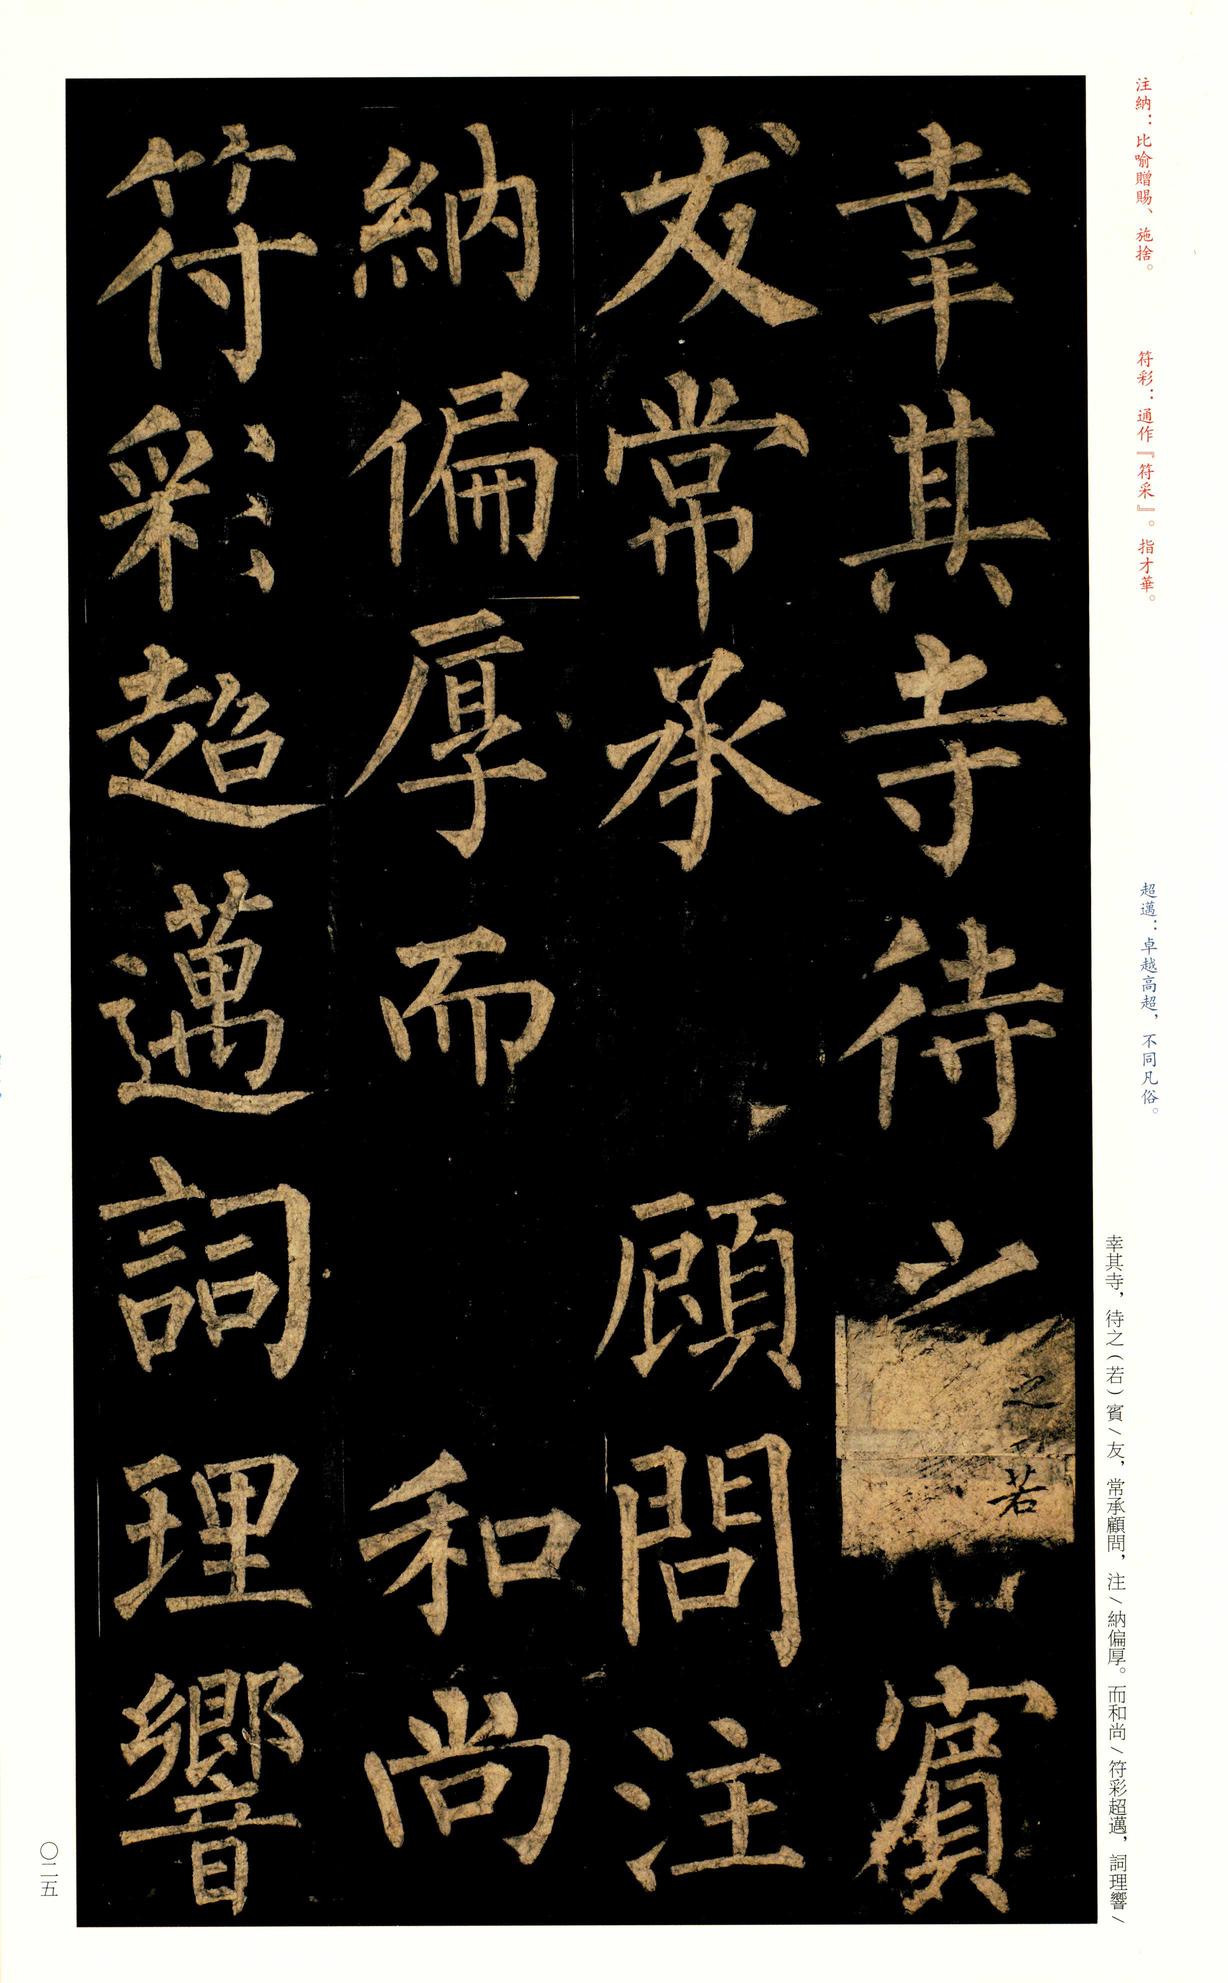 注納：比喻贈賜、施捨。
符彩：通作『符采』。指才華。
超邁：卓越高超，不同凡俗。
幸其寺，待之（若）賓／友，常承顧問，注／納偏厚。而和尚／符彩超邁，詞理響／
幸其寺待之賓
之若
友常承顧問注
納偏厚而和尚
符彩超邁詞理響
〇二五